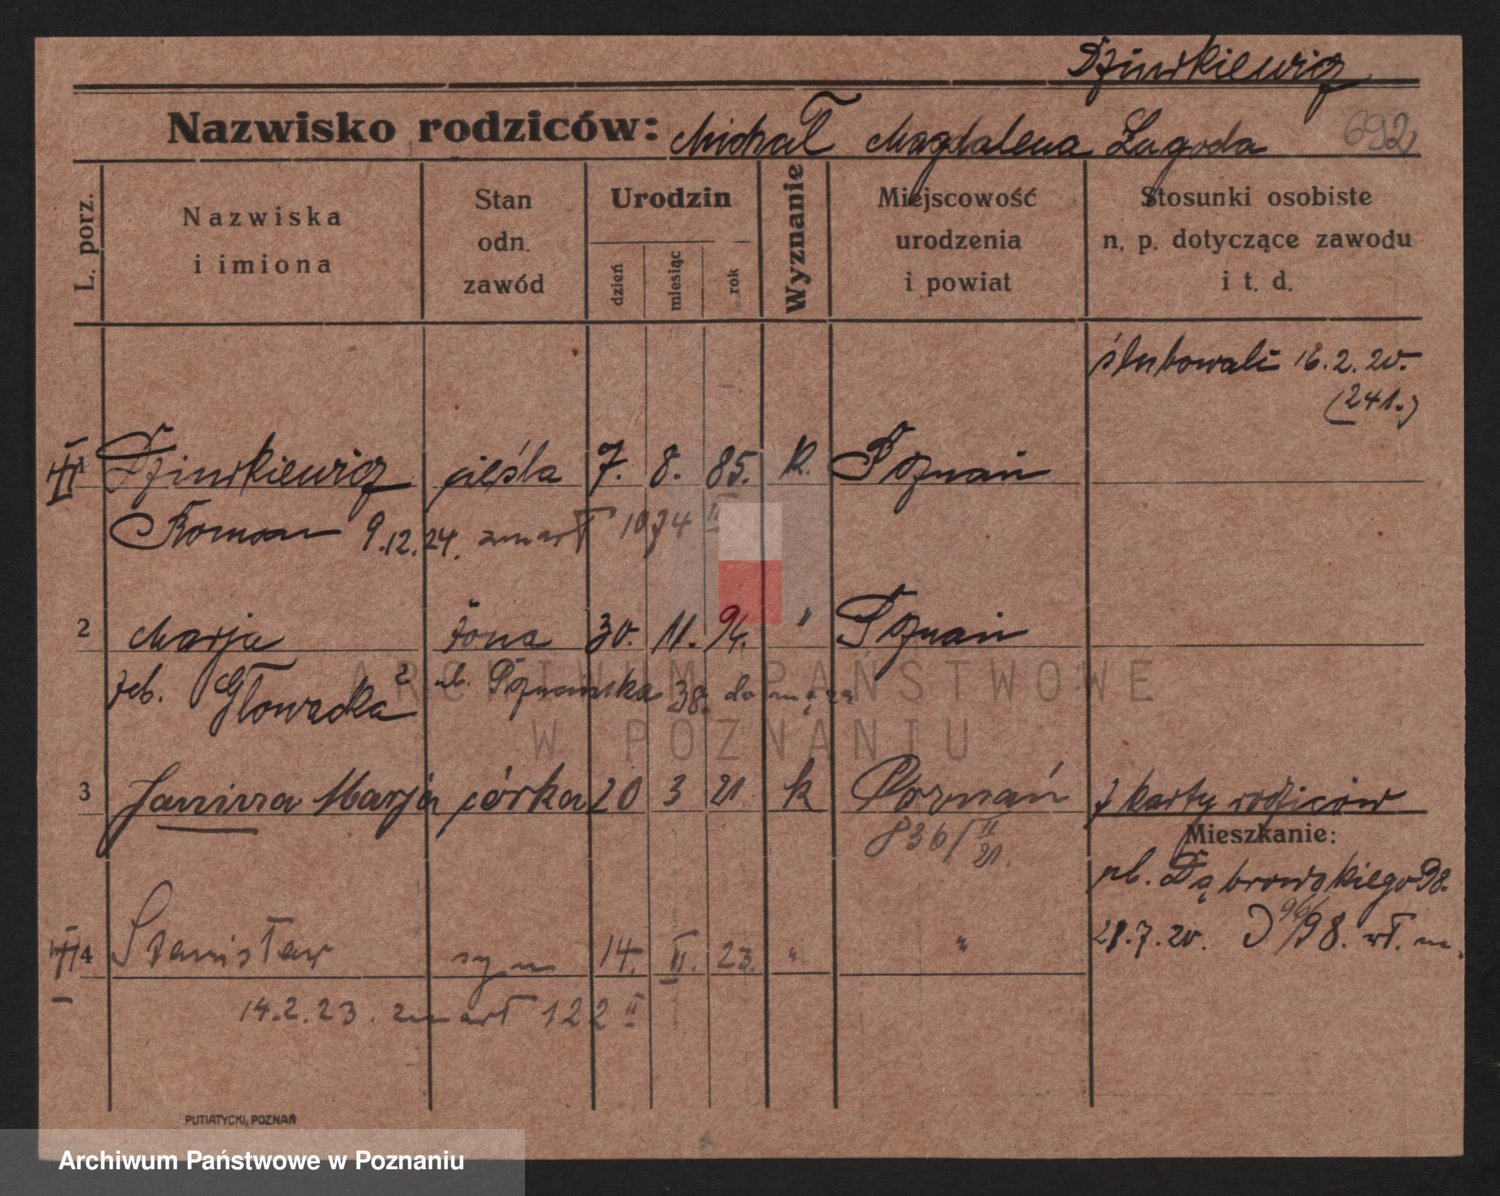 Dziurkiewicz
Nazwisko rodziców: Michał Magdalena Łagoda 692
L. porz. Nazwiska i imiona Stan odn. zawód Urodzin dzień miesiąc rok Wyznanie Miejscowość urodzenia i powiat Stosunki osobiste n. p. dotyczące zawodu i t. d.
ślubowali 16.2.20.
(241.)
1 Dziurkiewicz cieśla 7. 8. 85. k. Poznań
Roman 9.12.24. zmarł 1974 II
2 Marja żona 30. 11. 94. " Poznań
Głowacka ul. Poznańska 38. do męża
3 Janina Marja córka 20 3 21 k Poznań z karty rodziców
836/II 21.
Mieszkanie:
ul. Dąbrowskiego 98.
4 Stanisław syn 14. II. 23. " " 28.7.20. 96/98. wł. m.
14.2.23. zmarł 122 II
PUTIATYCKI, POZNAŃ
ARCHIWUM PAŃSTWOWE
W POZNANIU
Archiwum Państwowe w Poznaniu